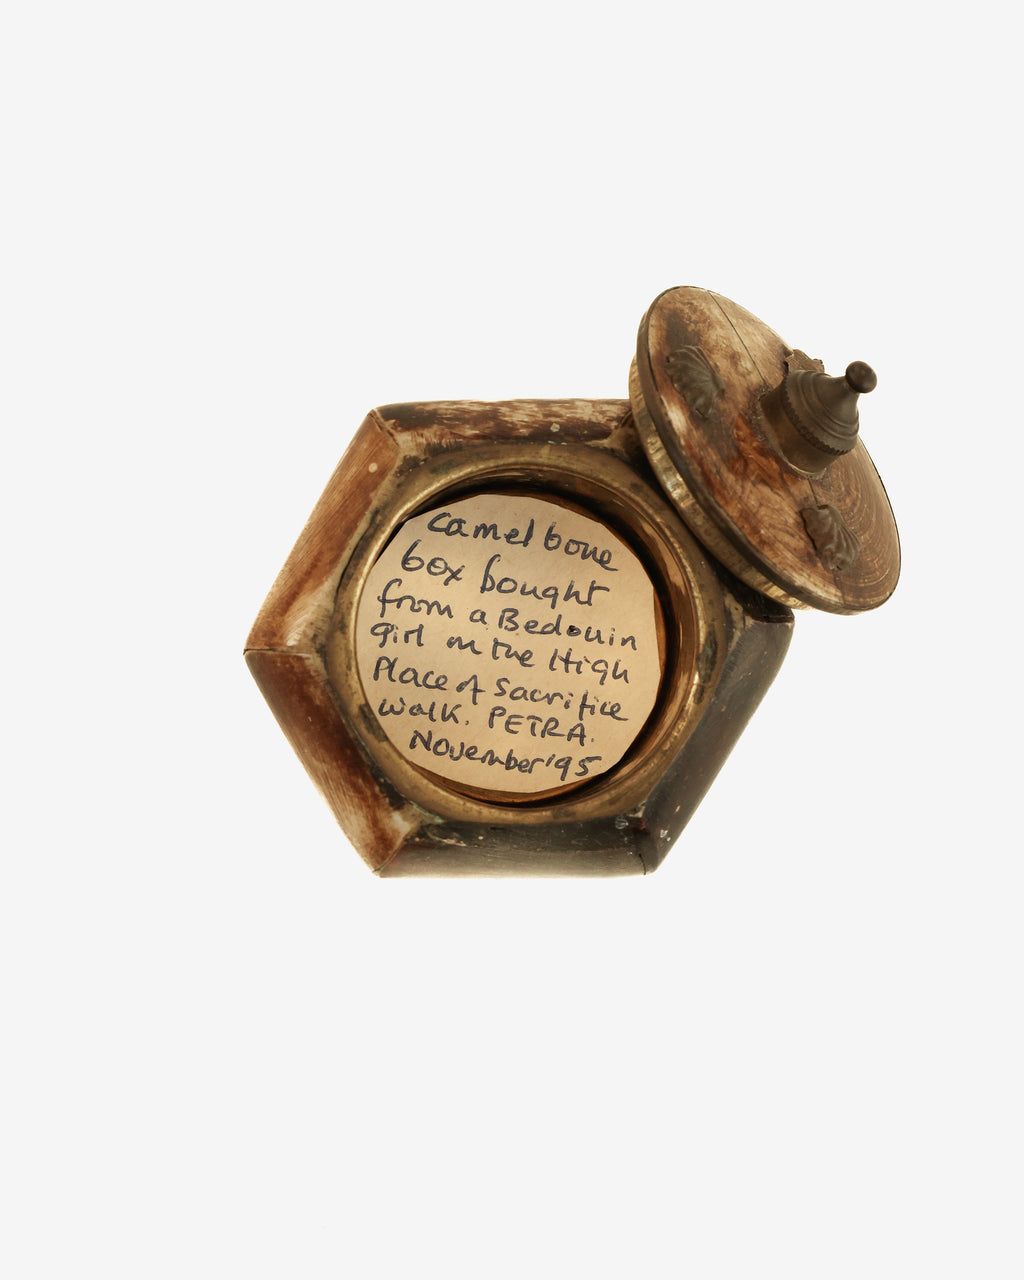 camel bone
box bought
from a Bedouin
girl on the High
Place of Sacrifice
walk. PETRA.
November '95